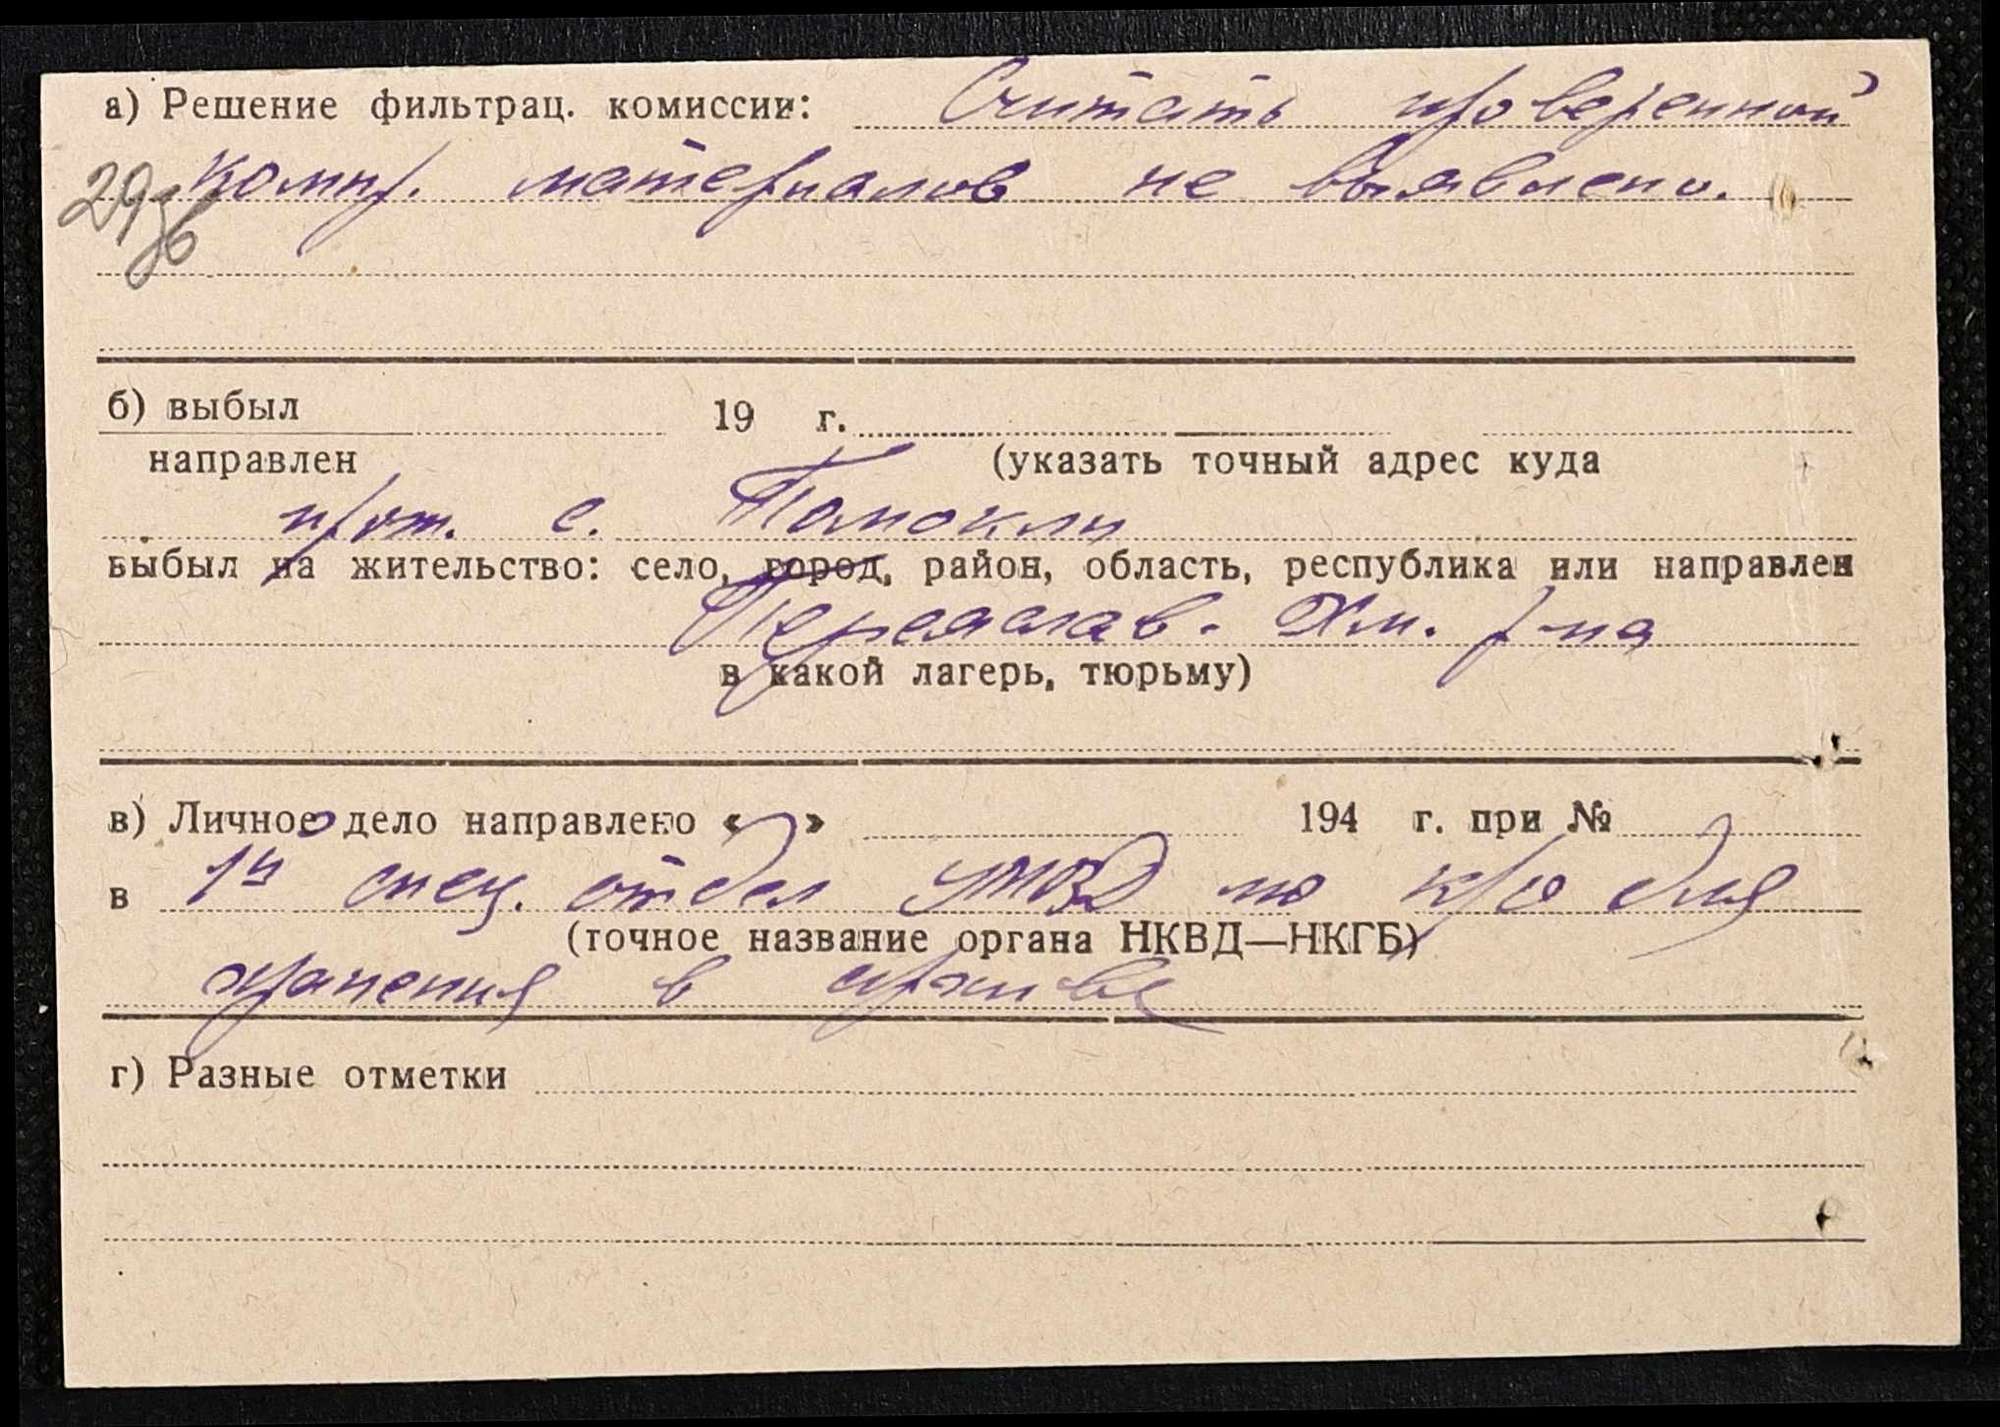 а) Решение фильтрац. комиссии: Считать проверенной
компр. материалов не выявлено.
29/6
б) выбыл 19 г.
направлен (указать точный адрес куда
прож. с. Помокли
выбыл на жительство: село, город, район, область, республика или направлен
Переяслав. Хм. р-на
в какой лагерь, тюрьму)
в) Личное дело направлено « » 194 г. при №
в 1й спец. отдел УМВД по к/о для
(точное название органа НКВД—НКГБ)
хранения в архиве
г) Разные отметки